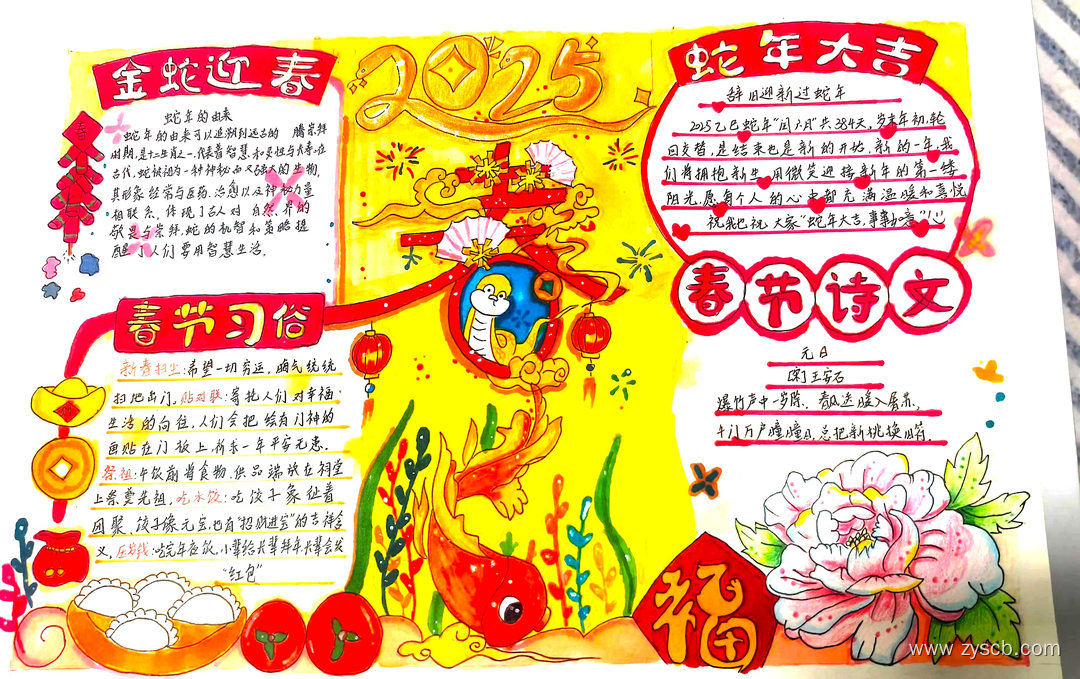 金蛇迎春
蛇年的由来
蛇年的由来可以追溯到远古的 腾崇拜
时期,是十二生肖之一,代表着智慧,和灵性与长寿.在
古代,蛇被视为一种神秘而又强大的生物,
其形象经常与医药.治愈以及神秘力量
相联系,体现了古人对 自然.界的
敬畏与崇拜,蛇的机智和策略提
醒了人们要用智慧生活.
春
2025
春
蛇年大吉
辞旧迎新过蛇年
2025乙巳蛇年"闰六月"共384天,岁末年初,轮
回交替,是结束也是新的开始,新的一年,我
们将拥抱新生,用微笑迎接新年的第一缕
阳光,愿每个人的心中都充满温暖和喜悦
祝我巳祝大家"蛇年大吉,事事如意"!
春节习俗
新春扫尘:希望一切穷运,晦气统统
扫地出门.贴对联:寄托人们对幸福
生活的向往,人们会把绘有门神的
画贴在门板上,祈求一年平安无患.
祭祖:午饭前将食物.供品端放在祠堂
上祭奠先祖,吃水饺:吃饺子象征着
团聚,饺子像元宝,也有"招财进宝"的吉祥含
义,压岁钱:吃年夜饭,小辈给长辈拜年长辈会发
"红包"
春节诗文
元日
[宋]王安石
爆竹声中一岁除,春风送暖入屠苏,
千门万户曈曈日,总把新桃换旧符.
福
www.zyscb.com